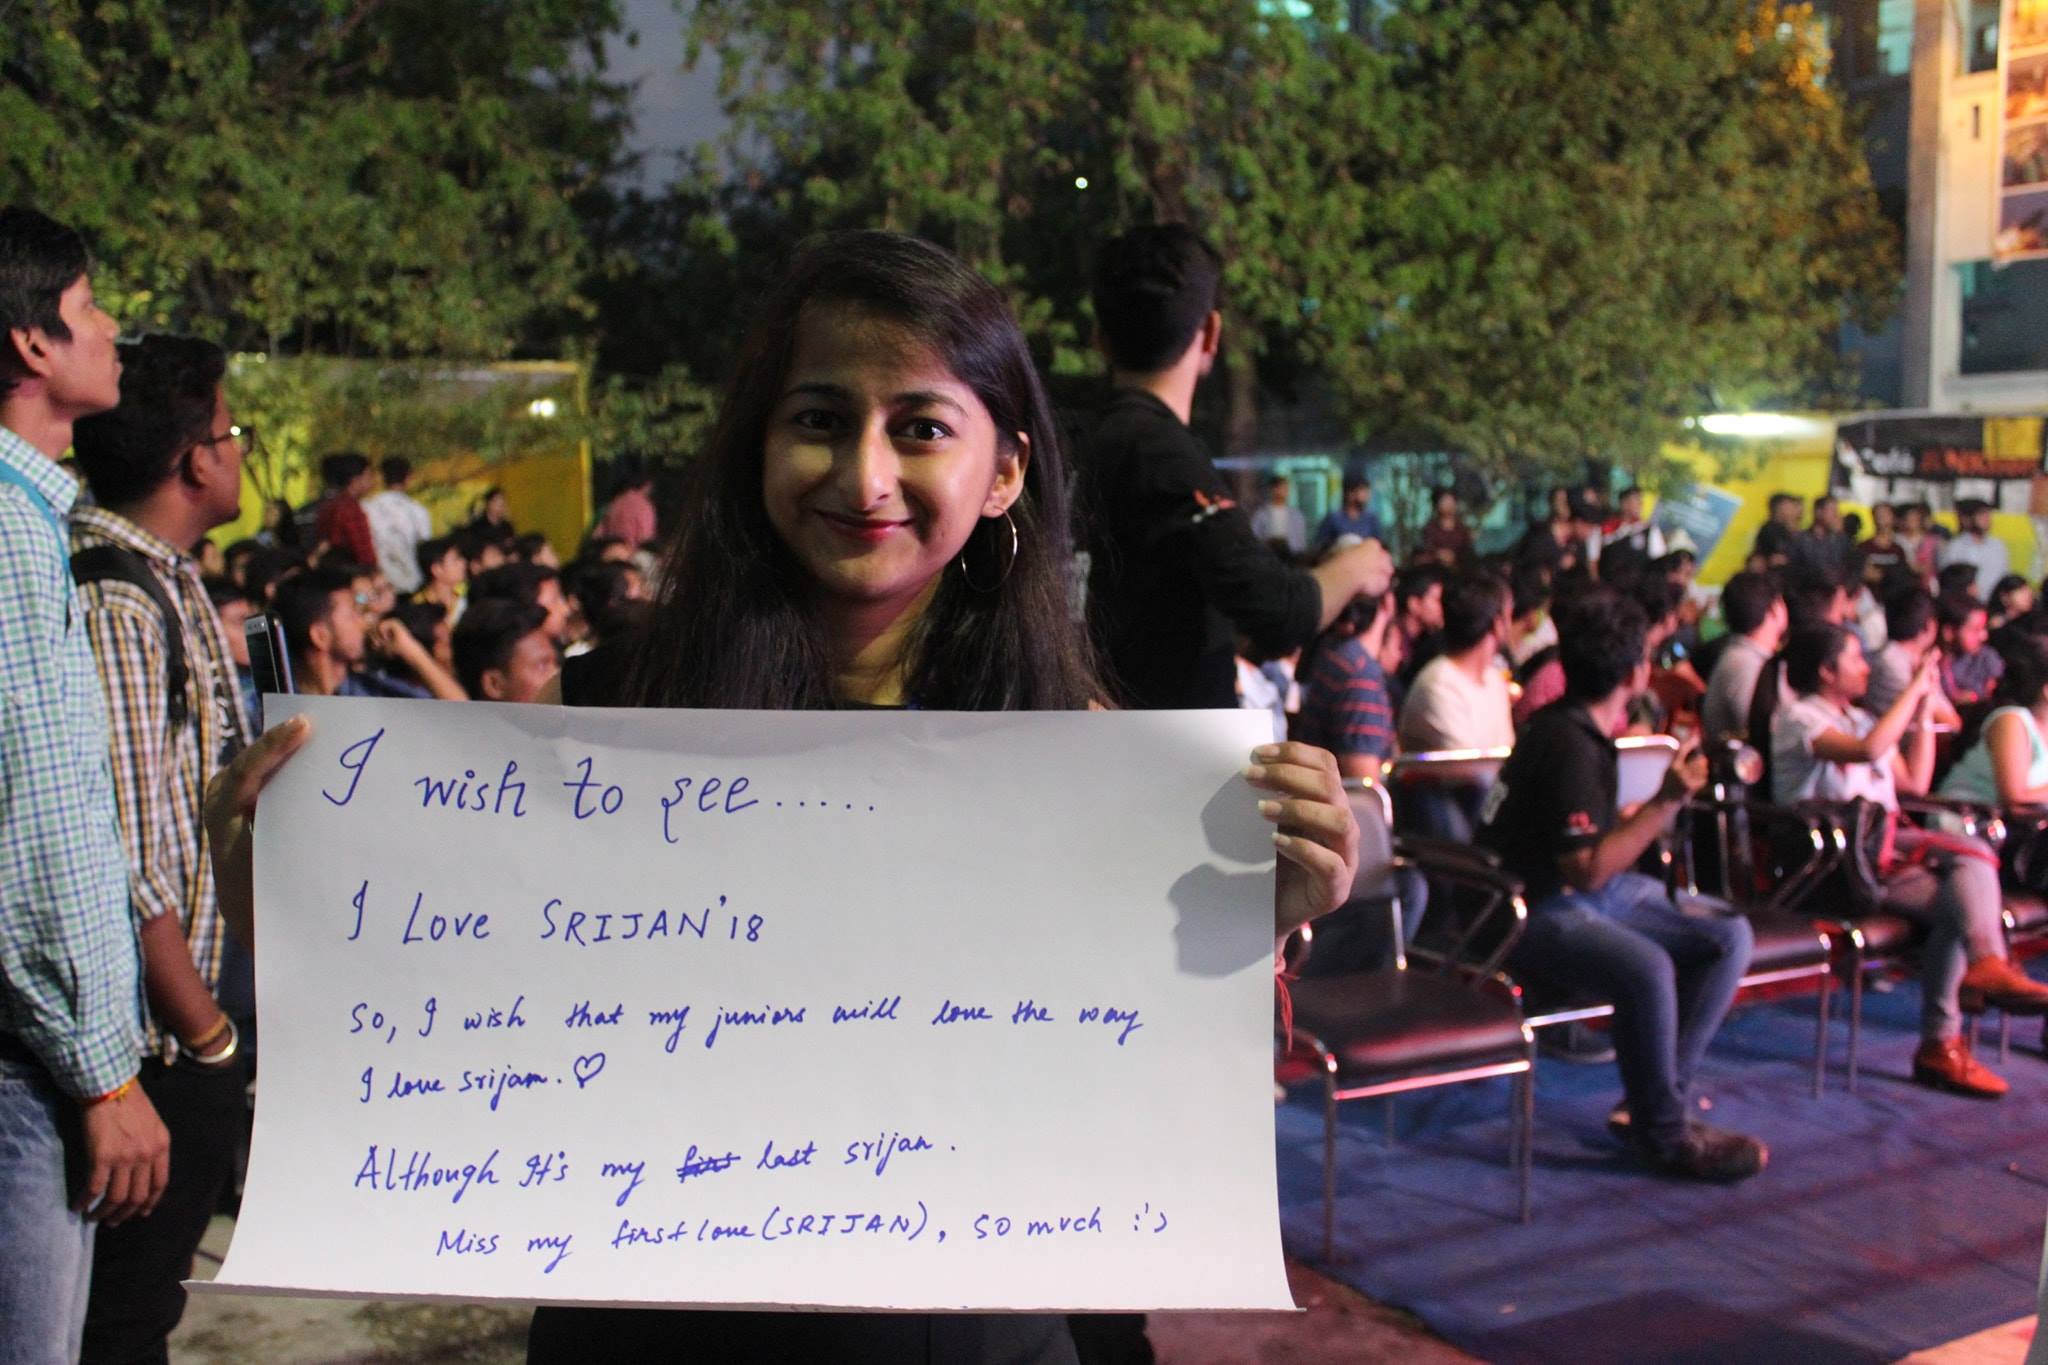 I wish to see.....
I Love SRIJAN'18
So, I wish that my juniors will love the way
I love srijan. ♡
Although It's my last srijan.
Miss my first love (SRIJAN), so much :')